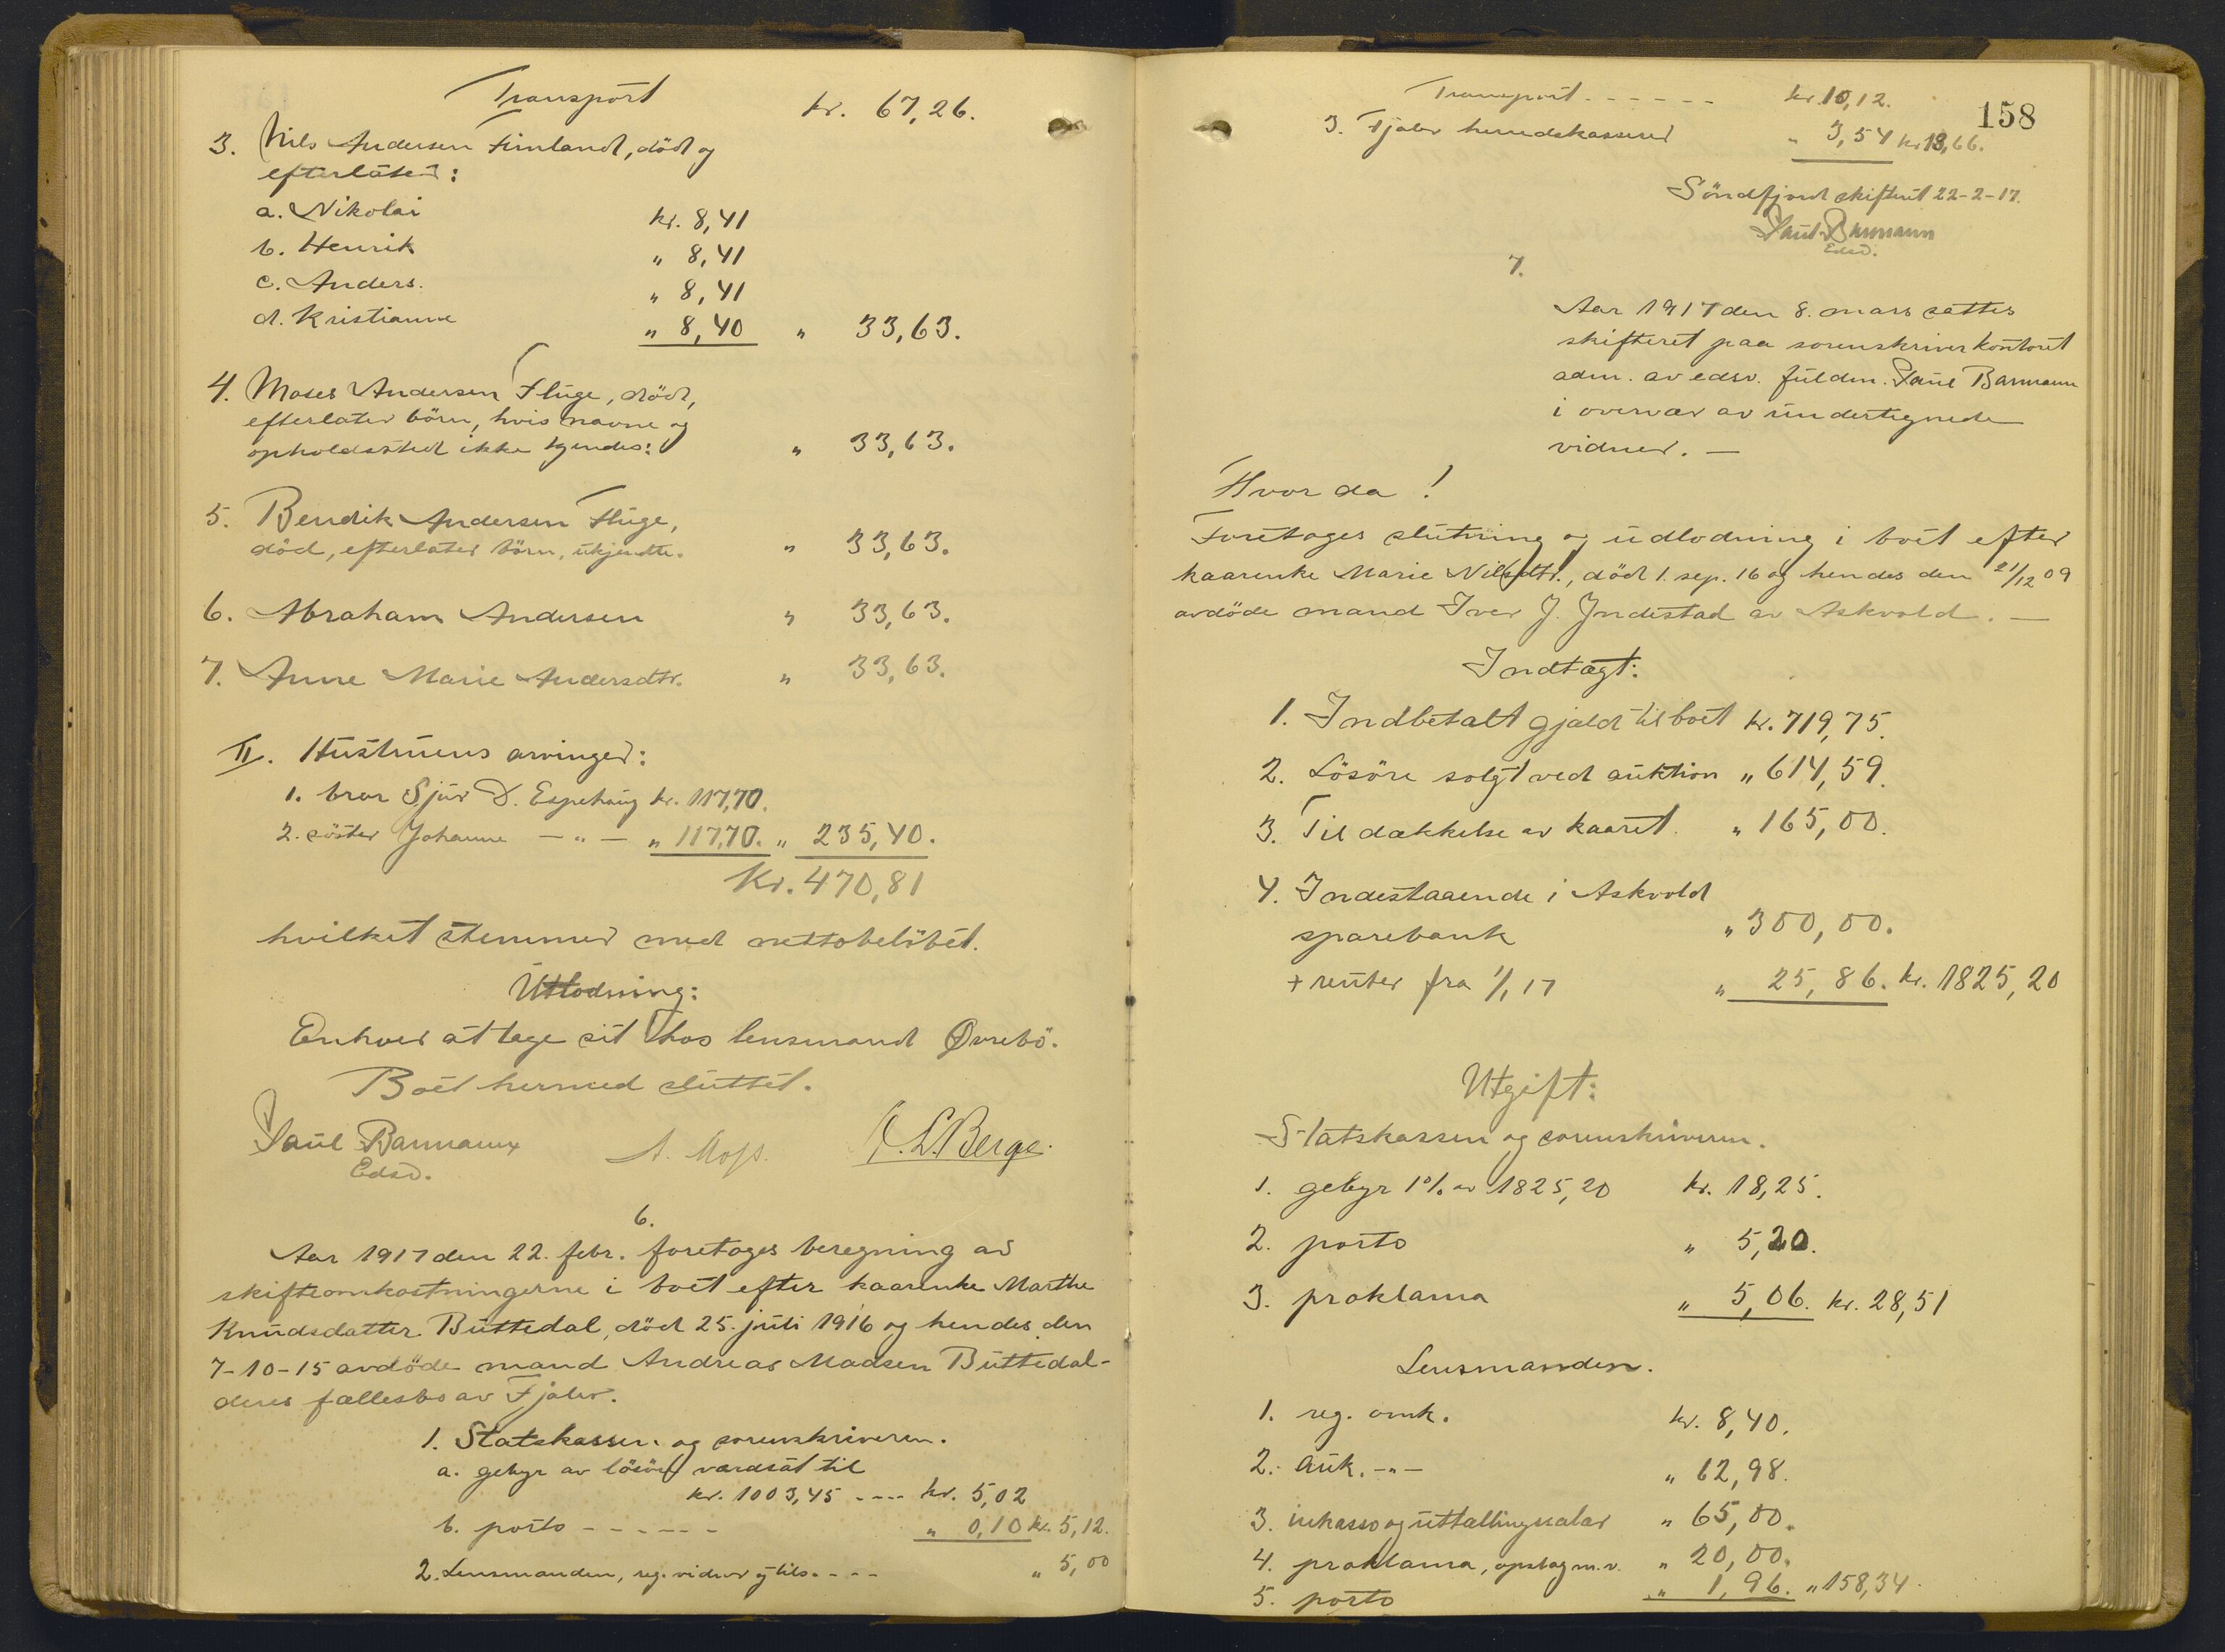 Transport kr. 67,26.
3. Nils Andersen Timland, död og
efterlater:
a. Nikolai kr. 8,41
b. Henrik " 8,41
c. Anders. " 8,41
d. Kristianne " 8,40 " 33,63.
4. Moses Andersen Fluge, död,
efterlater börn, hvis navne og
opholdssted ikke kjendes: " 33,63.
5. Bendik Andersen Fluge,
död, efterlater börn, ukjendte. " 33,63.
6. Abraham Andersen " 33,63.
7. Anne Marie Andersdtr. " 33,63.
II. Hustruens arvinger:
1. bror Sjur D. Espehaug kr. 117,70.
2. söster Johanne — " — " 117,70. " 235,40.
Kr. 470,81
hvilket stemmer med nettobelöbet.
Utlodning:
Enhver at tage sit hos lensmand Øvrebö.
Boet hermed sluttet.
Paul Barmann A. Moss. L. Berge.
Edsv.
6.
Aar 1917 den 22. febr. foretoges beregning av
skifteomkostningerne i boet efter kaarenke Marthe
Knudsdatter Buttedal, död 25. juli 1916 og hendes den
7-10-15 avdöde mand Andreas Madsen Buttedal-
deres fællesbo av Fjaler.
1. Statskassen og sorenskriveren.
a. gebyr av lösöre værdsat til
kr. 1003,45 ---- kr. 5,02
b. porto - - - - - - " 0,10 kr. 5,12.
2. Lensmanden, reg. vidner og tils. - - - " 5,00
158
Transport - - - - - - kr. 10,12.
3. Fjaler herredskasserer " 3,54 kr 13,66.
Söndfjord skifteret 22-2-17.
Paul Barmann
Edsv.
7.
Aar 1917 den 8. mars sattes
skifteret paa sorenskriverkontoret
adm. av edsv. fuldm. Paul Barmann
i overvær av undertegnede
vidner. —
Hvor da!
Foretoges slutning og udlodning i boet efter
kaarenke Marie Nilsdtr., död 1. sep. 16 og hendes den 21/12 09
avdöde mand Iver J. Indestad av Askvold. —
Indtægt:
1. Indbetalt gjæld til boet kr. 719,75.
2. Lösöre solgt ved auktion " 614,59.
3. Til dækkelse av kaaret. " 165,00.
4. Indestaaende i Askvold
sparebank " 300,00.
+ renter fra 1/1 17 " 25,86. kr. 1825,20
Utgift:
Statskassen og sorenskriveren.
1. gebyr 1% av 1825,20 kr. 18,25.
2. porto " 5,20.
3. proklama " 5,06. kr. 28,51
Lensmanden.
1. reg. omk. kr. 8,40.
2. auk. -"- " 62,98.
3. inkasso og uttællingssalær " 65,00.
4. proklama, opslag m.v. " 20,00.
5. porto " 1,96. " 158,34.